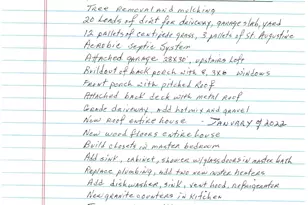 Tree Removal and mulching
20 loads of dirt for driveway, garage slab, yard
12 pallets of centipede grass, 3 pallets of St. Augustine
Aerobic Septic System
Attached garage 28x30', upstairs Loft
Buildout of back porch with 8, 3x6 windows
Front porch with pitched Roof
Attached back deck with metal Roof
Grade driveway, add hotmix and gravel
New Roof entire house - JANUARY of 2022
New wood floors entire house
Build closets in master bedroom
Add sink, cabinet, shower w/glass doors in master bath
Replace plumbing, add two new water heaters
Add dishwasher, sink, vent hood, refrigerator
New granite counters in kitchen